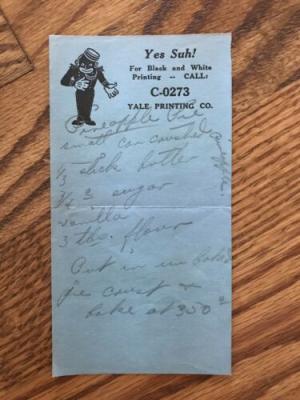 Yes Suh!
For Black and White
Printing -- CALL:
C-0273
YALE PRINTING CO.
Pineapple Pie
small can crushed pineapple
1/3 stick butter
sugar
vanilla
3 tbs. flour
Put in un baked
pie crust &
bake at 350°